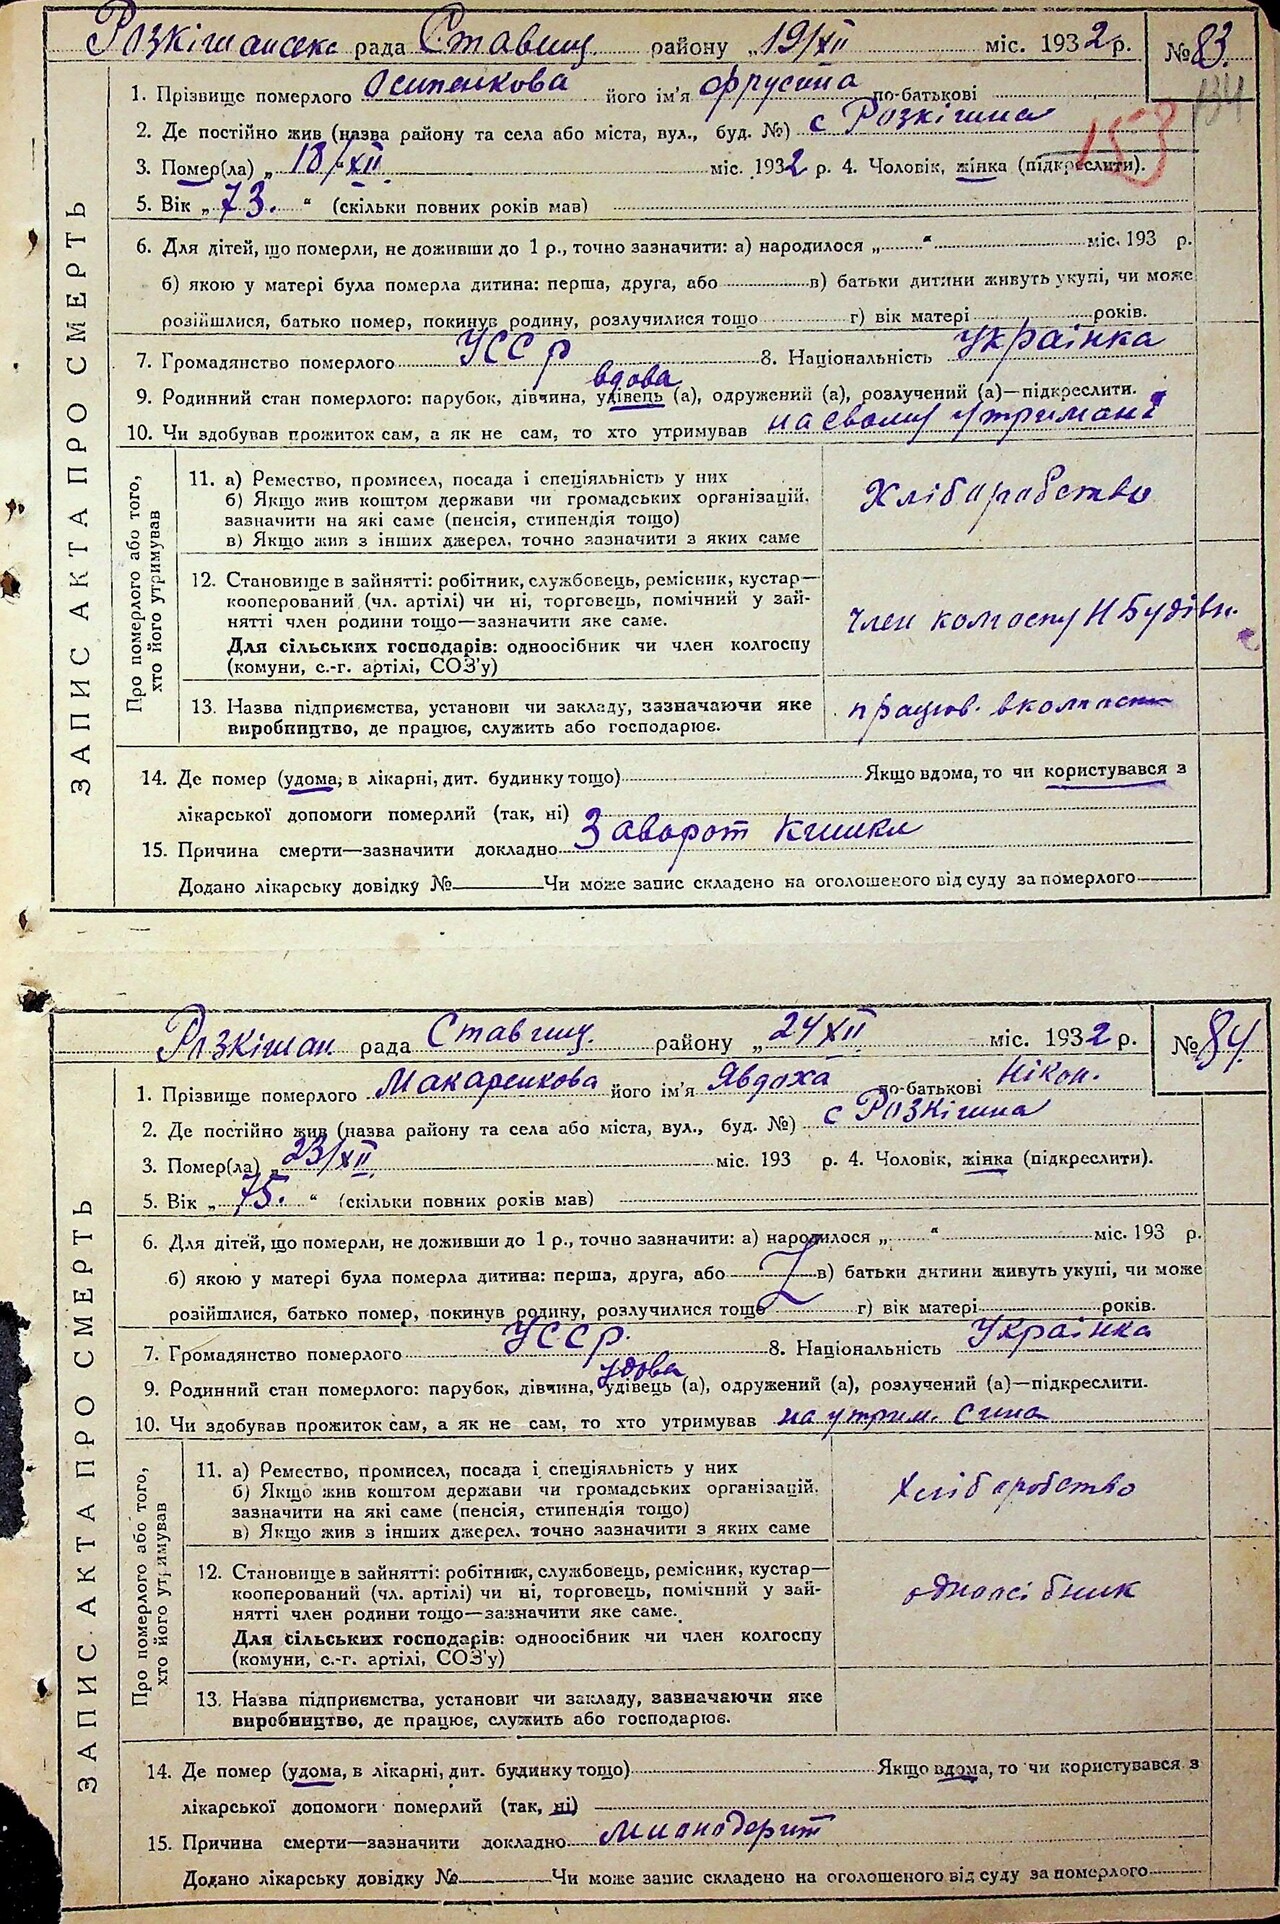 Розкішанська рада Ставищ. району „19/XII міс. 1932 р. №83.
134
1. Прізвище померлого Осипенкова його ім'я Фрусина по-батькові
2. Де постійно жив (назва району та села або міста, вул., буд. №) с Розкішна
153
3. Помер(ла) „18/XII міс. 1932 р. 4. Чоловік, жінка (підкреслити).
5. Вік „73.“ (скільки повних років мав)
6. Для дітей, що померли, не доживши до 1 р., точно зазначити: а) народилося „ “ міс. 193 р.
б) якою у матері була померла дитина: перша, друга, або в) батьки дитини живуть укупі, чи може
розійшлися, батько помер, покинув родину, розлучилися тощо г) вік матері років.
7. Громадянство померлого УССР 8. Національність Українка
вдова
9. Родинний стан померлого: парубок, дівчина, удівець (а), одружений (а), розлучений (а)—підкреслити.
10. Чи здобував прожиток сам, а як не сам, то хто утримував на своему утримані
ЗАПИС АКТА ПРО СМЕРТЬ
Про померлого або того,
хто його утримував
11. а) Ремество, промисел, посада і спеціяльність у них
б) Якщо жив коштом держави чи громадських організацій,
зазначити на які саме (пенсія, стипендія тощо)
в) Якщо жив з інших джерел, точно зазначити з яких саме
Хліборобство
12. Становище в зайнятті: робітник, службовець, ремісник, кустар—
кооперований (чл. артілі) чи ні, торговець, помічний у зай-
нятті член родини тощо—зазначити яке саме.
Для сільських господарів: одноосібник чи член колгоспу
(комуни, с.-г. артілі, СОЗ'у)
член колгоспу Н Будівн.
13. Назва підприємства, установи чи закладу, зазначаючи яке
виробництво, де працює, служить або господарює.
працюв. в колгоспі
14. Де помер (удома, в лікарні, дит. будинку тощо) Якщо вдома, то чи користувався з
лікарської допомоги померлий (так, ні)
15. Причина смерти—зазначити докладно Заворот кишки
Додано лікарську довідку № Чи може запис складено на оголошеного від суду за померлого
Розкішан. рада Ставищ. району „24 XII міс. 1932 р. №84.
1. Прізвище померлого Макаренкова його ім'я Явдоха по-батькові Нікон.
2. Де постійно жив (назва району та села або міста, вул., буд. №) с Розкішна
3. Помер(ла) „23/XII міс. 193 р. 4. Чоловік, жінка (підкреслити).
5. Вік „75.“ (скільки повних років мав)
6. Для дітей, що померли, не доживши до 1 р., точно зазначити: а) народилося „ “ міс. 193 р.
б) якою у матері була померла дитина: перша, друга, або в) батьки дитини живуть укупі, чи може
розійшлися, батько помер, покинув родину, розлучилися тощо г) вік матері років.
7. Громадянство померлого УССР. 8. Національність Українка
удова
9. Родинний стан померлого: парубок, дівчина, удівець (а), одружений (а), розлучений (а)—підкреслити.
10. Чи здобував прожиток сам, а як не сам, то хто утримував на утрим. сина
ЗАПИС АКТА ПРО СМЕРТЬ
Про померлого або того,
хто його утримував
11. а) Ремество, промисел, посада і спеціяльність у них
б) Якщо жив коштом держави чи громадських організацій,
зазначити на які саме (пенсія, стипендія тощо)
в) Якщо жив з інших джерел, точно зазначити з яких саме
Хліборобство
12. Становище в зайнятті: робітник, службовець, ремісник, кустар—
кооперований (чл. артілі) чи ні, торговець, помічний у зай-
нятті член родини тощо—зазначити яке саме.
Для сільських господарів: одноосібник чи член колгоспу
(комуни, с.-г. артілі, СОЗ'у)
одноосібник
13. Назва підприємства, установи чи закладу, зазначаючи яке
виробництво, де працює, служить або господарює.
14. Де помер (удома, в лікарні, дит. будинку тощо) Якщо вдома, то чи користувався з
лікарської допомоги померлий (так, ні)
15. Причина смерти—зазначити докладно
Додано лікарську довідку № Чи може запис складено на оголошеного від суду за померлого